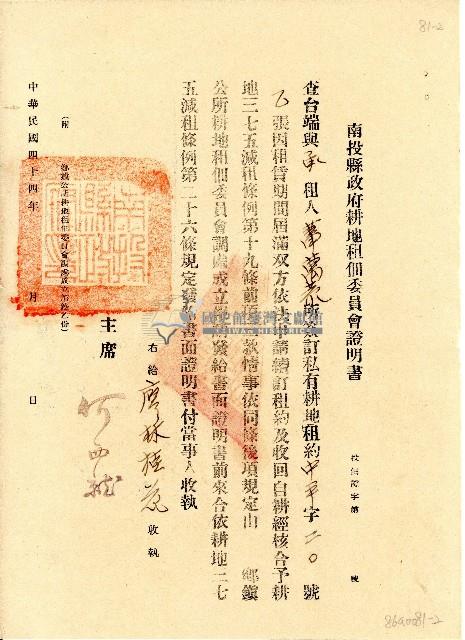 81-2
南投縣政府耕地租佃委員會證明書
投佃證字第　　號
查台端與承租人　　所訂私有耕地租約中平字二〇號
乙張因租賃期間屆滿双方依法申請續訂租約及收回自耕經核合予耕
地三七五減租條例第十九條前項　款情事依同條後項規定由　　鄉鎮
公所耕地租佃委員會調處成立　發給書面證明書前來合依耕地三七
五減租條例第二十六條規定發給書面證明書付當事人收執
右給 詹林桂蕊 收執
主席
中華民國四十四年　　月　　日
國史館臺灣文獻館
869a081-2